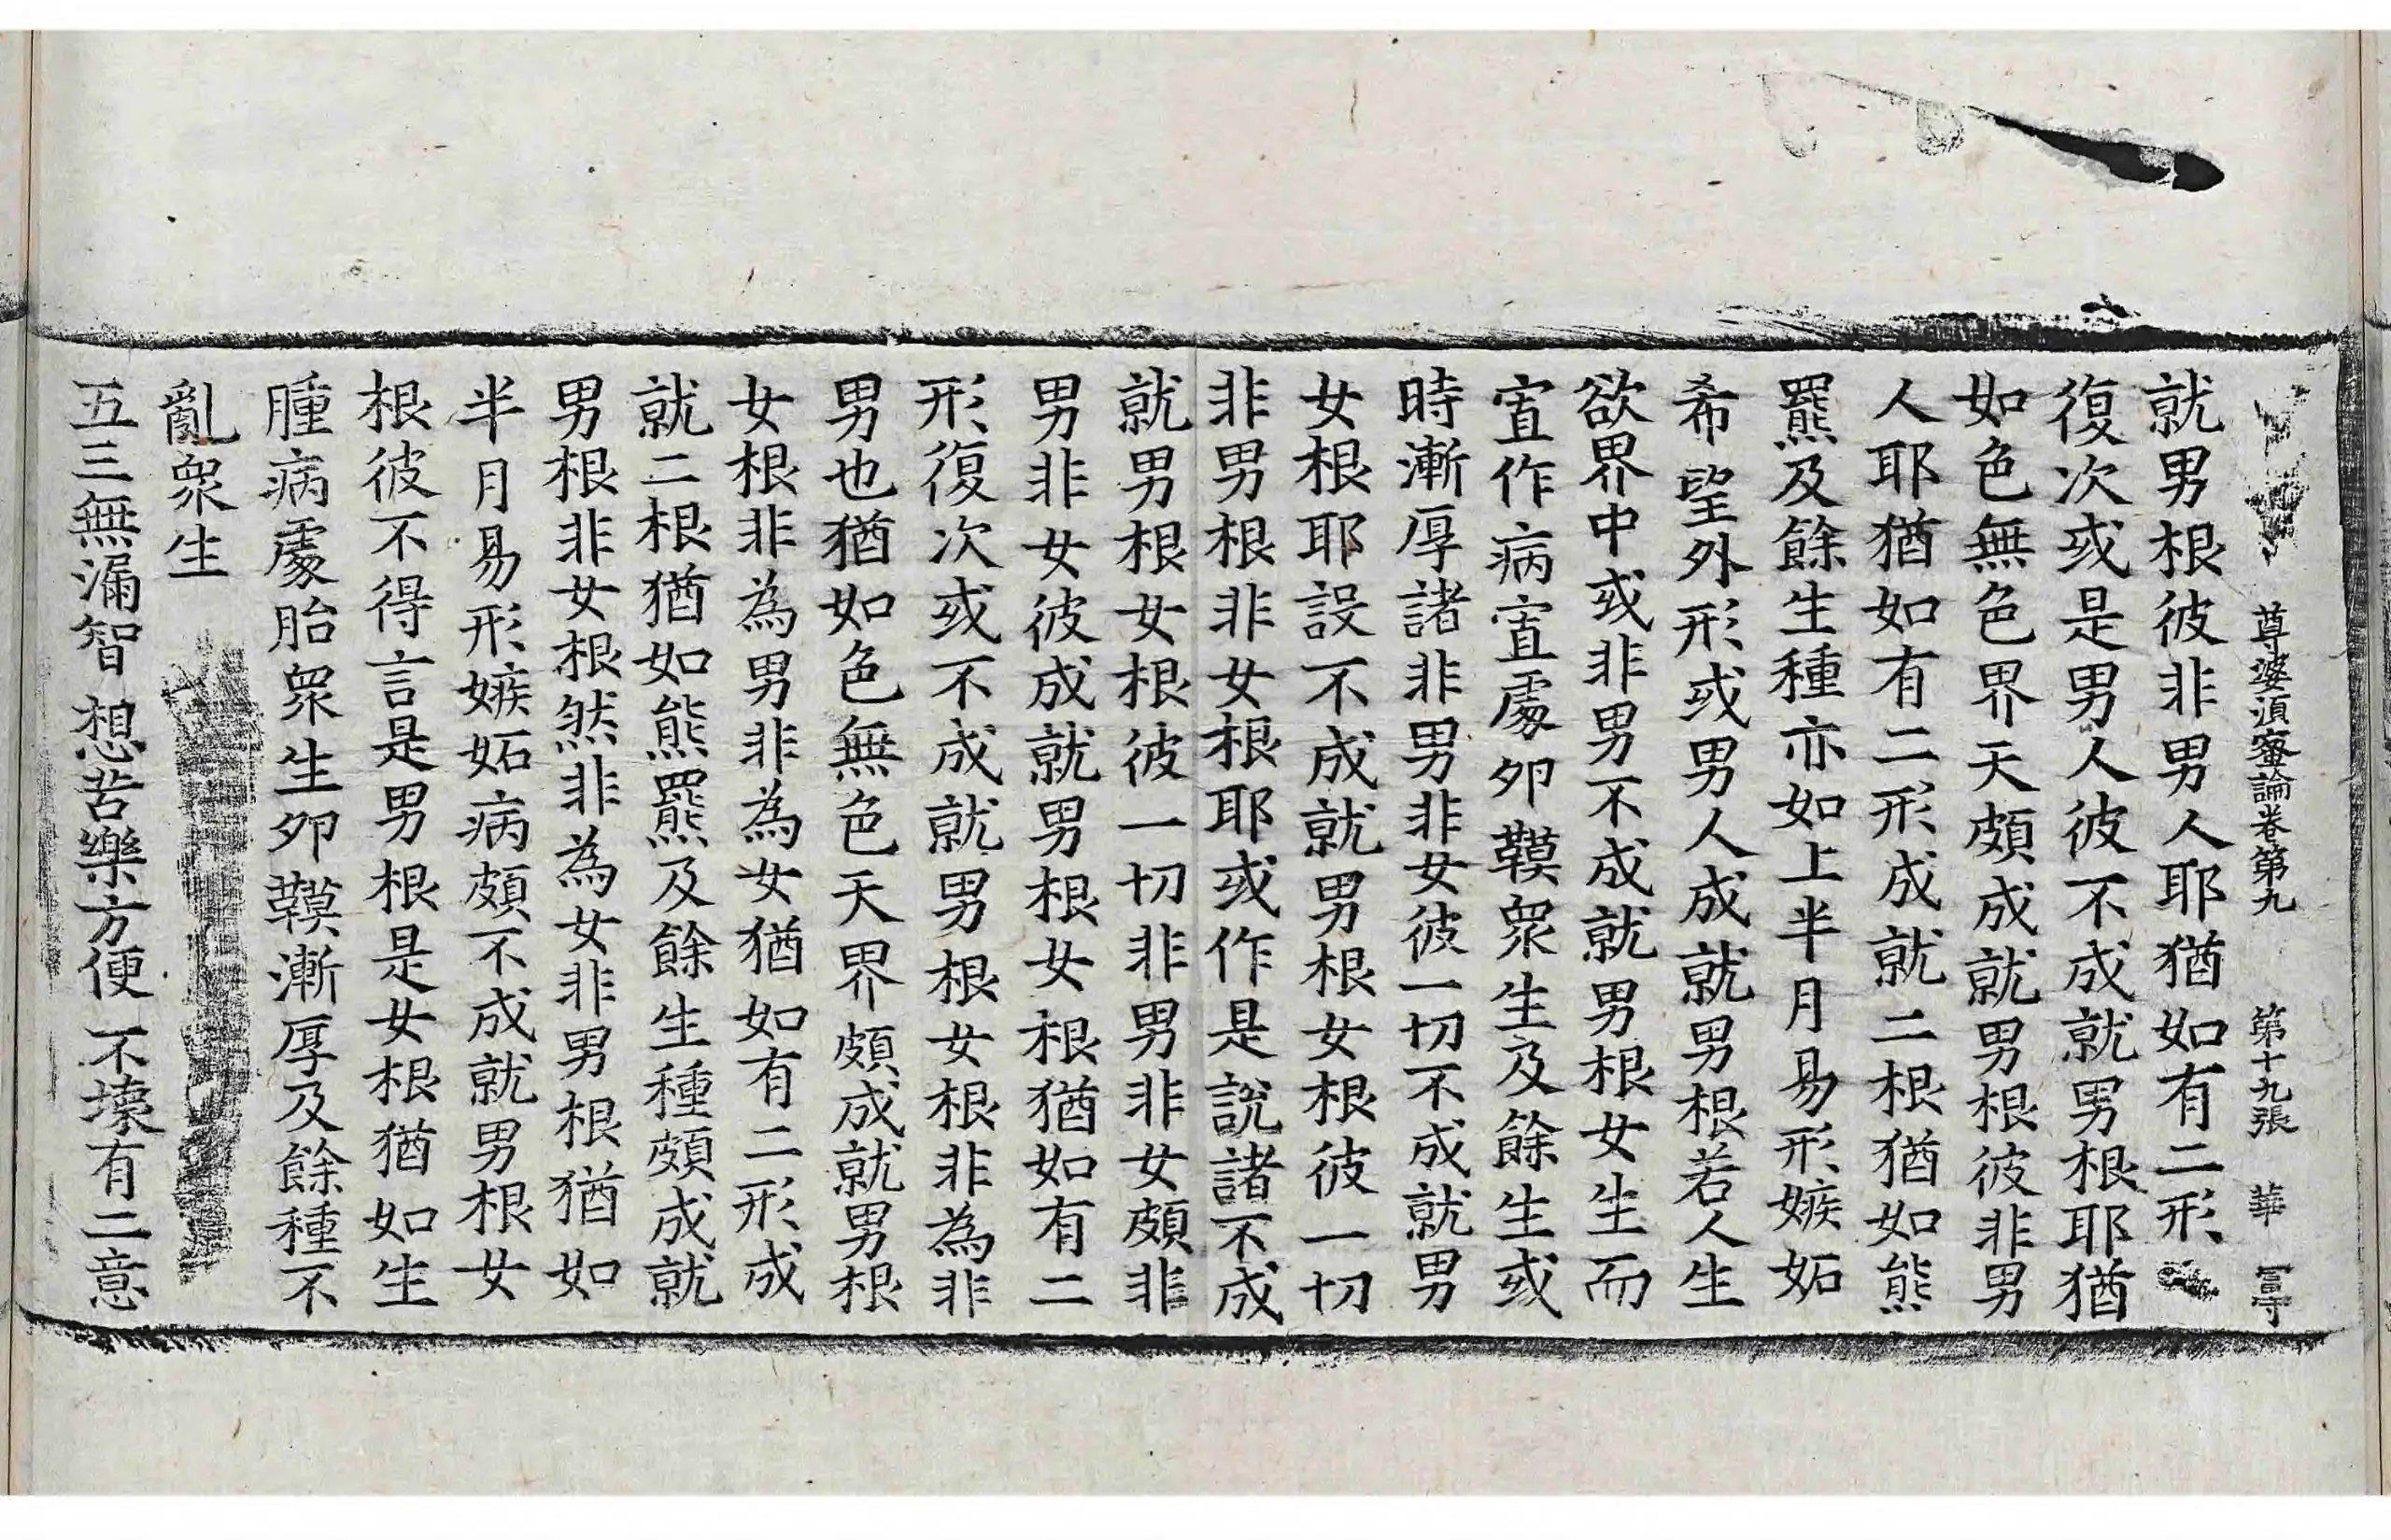 尊婆湏蜜論卷第九 第十九張 華
就男根彼非男人耶猶如有二形
復次或是男人彼不成就男根耶猶
如色無色界天頗成就男根彼非男
人耶猶如有二形成就二根猶如熊
羆及餘生種亦如上半月易形嫉妬
希望外形或男人成就男根若人生
欲界中或非男不成就男根女生而
寘作病寘處夘鞕衆生及餘生或
時漸厚諸非男非女彼一切不成就男
女根耶設不成就男根女根彼一切
非男根非女根耶或作是說諸不成
就男根女根彼一切非男非女頗非
男非女彼成就男根女根猶如有二
形復次或不成就男根女根非為非
男也猶如色無色天界頗成就男根
女根非為男非為女猶如有二形成
就二根猶如熊羆及餘生種頗成就
男根非女根然非為女非男根猶如
半月易形嫉妬病頗不成就男根女
根彼不得言是男根是女根猶如生
腫病處胎衆生夘鞕漸厚及餘種不
亂衆生
五三無漏智 想苦樂方便 不壞有二意